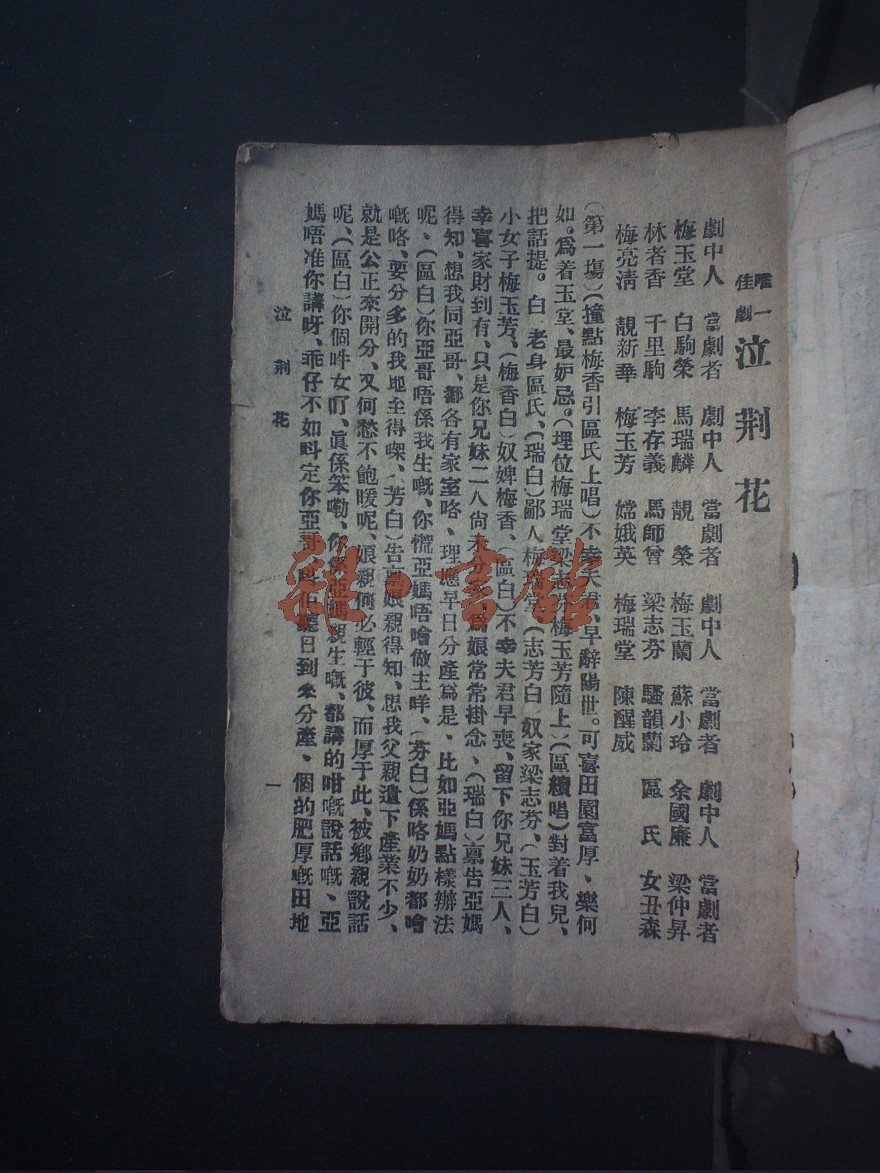 唯一佳劇 泣荆花
劇中人 當劇者 劇中人 當劇者 劇中人 當劇者 劇中人 當劇者
梅玉堂 白駒榮 馬瑞麟 靚榮 梅玉蘭 蘇小玲 余國廉 梁仲昇
林者香 千里駒 李存義 馬師曾 梁志芬 騷韻蘭 區氏 女丑森
梅亮淸 靚新華 梅玉芳 嫦娥英 梅瑞堂 陳醒威
(第一塲)(撞點梅香引區氏上唱)不幸夫君、早辭陽世。可喜田園富厚、樂何
如。爲着玉堂、最妒忌。(埋位梅瑞堂梁志芬梅玉芳隨上)(區續唱)對着我兒、
把話提。白 老身區氏、(瑞白)鄙人梅瑞堂、(志芳白)奴家梁志芬、(玉芳白)
小女子梅玉芳、(梅香白)奴婢梅香、(區白)不幸夫君早喪、留下你兄妹三人、
幸喜家財到有、只是你兄妹二人尙未分 爲娘常常掛念、(瑞白)禀告亞媽
得知、想我同亞哥、都各有家室咯、理應早日分產爲是、比如亞媽點樣辦法
呢、(區白)你亞哥唔係我生嘅、你慌亞媽唔噲做主咩、(芬白)係咯奶奶都噲
嘅咯、要分多的我哋至得㗎、(芳白)告禀娘親得知、想我父親遺下產業不少、
就是公正來開分、又何愁不飽暖呢、娘親何必輕于彼、而厚于此、被鄉親說話
呢、(區白)你個吽女叮、眞係笨嘞、你係亞媽親生嘅、都講的咁嘅說話嘅、亞
媽唔准你講呀、乖仔不如呌定你亞哥 聽日到來分產、個的肥厚嘅田地
泣荆花
一
雜·書館